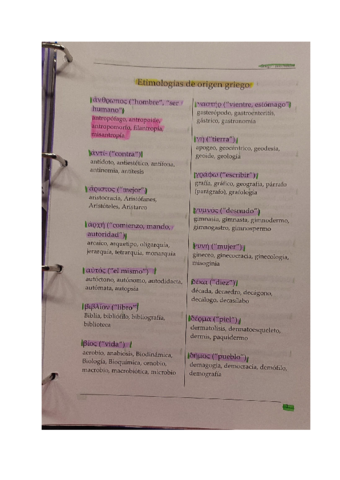 Etimologías de origen griego
ἄνθρωπος ("hombre", "ser
humano")
antropófago, antropoide,
antropomorfo, filantropía,
misantropía
ἀντί- ("contra")
antídoto, antiestético, antifona,
antinomia, antítesis
ἄριστος ("mejor")
aristocracia, Aristófanes,
Aristóteles, Aristarco
ἀρχή ("comienzo, mando,
autoridad")
arcaico, arquetipo, oligarquía,
jerarquía, tetrarquía, monarquía
αὐτός ("el mismo")
autóctono, autónomo, autodidacta,
autómata, autopsia
βιβλίον ("libro")
Biblia, bibliófilo, bibliografía,
biblioteca
βίος ("vida")
aerobio, anabiosis, Biodinámica,
Biología, Bioquímica, cenobio,
macrobio, macrobiótica, microbio
γαστήρ ("vientre, estómago")
gasterópodo, gastroenteritis,
gástrico, gastronomía
γῆ ("tierra")
apogeo, geocéntrico, geodesia,
geoide, geología
γράφω ("escribir")
grafía, gráfico, geografía, párrafo
(parágrafo), grafología
γυμνός ("desnudo")
gimnasia, gimnasta, gimnodermo,
gimnospermo
γυνή ("mujer")
gineceo, ginecocracia, ginecología,
misoginia
δέκα ("diez")
década, decaedro, decágono,
decálogo, decasílabo
δέρμα ("piel")
dermatolisis, dermatoesqueleto,
dermis, paquidermo
δῆμος ("pueblo")
demagogia, democracia,
demografía